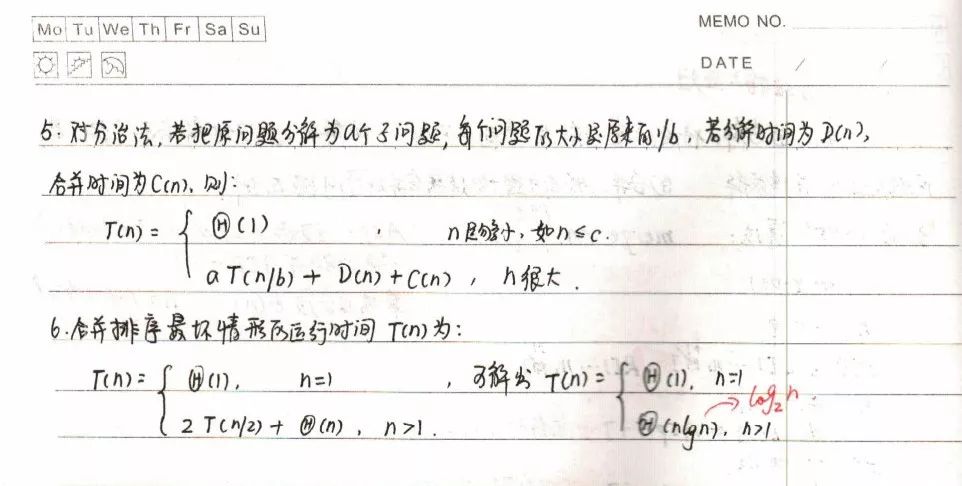 Mo Tu We Th Fr Sa Su
MEMO NO.
DATE / /
5. 对分治法,若把原问题分解为a个子问题,每个问题的大小是原来的1/b,若分解时间为D(n),
合并时间为C(n),则:
T(n) = { Θ(1) , n足够小,如n≤c.
aT(n/b) + D(n) + C(n) , n很大.
6. 合并排序最坏情形的运行时间 T(n)为:
T(n) = { Θ(1), n=1 , 可解出 T(n) = { Θ(1), n=1
2T(n/2) + Θ(n), n>1. Θ(nlgn), n>1. → log₂n.